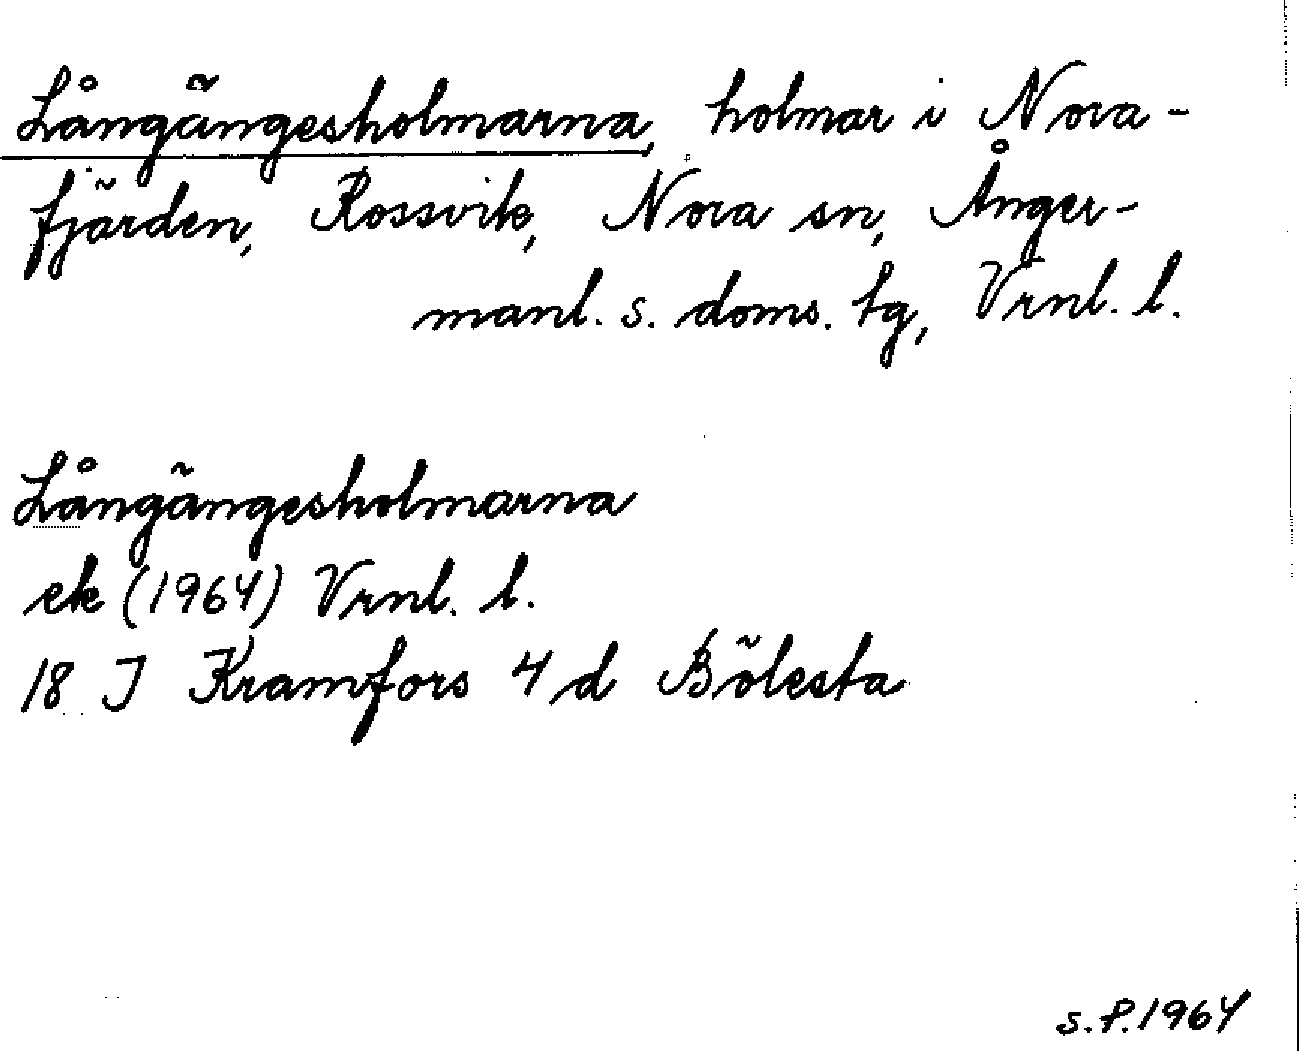 Långängesholmarna, holmar i Nora-
fjärden, Rossvik, Nora sn, Ånger-
manl. s. doms. tg, Vrnl. l.
Långängesholmarna
ek (1964) Vrnl. l.
18 J Kramfors 4 d Bölesta
S.P. 1964